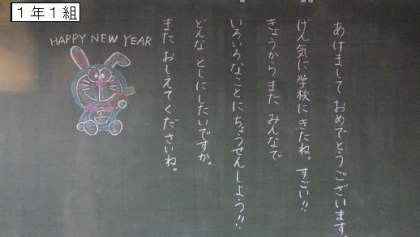 1年1組
HAPPY NEW YEAR
あけまして おめでとうございます。
げん気に学校にきたね。すごい!!
きょうから また みんなで
いろいろなことにちょうせんしよう!!
どんな としにしたいですか。
また おしえてくださいね。